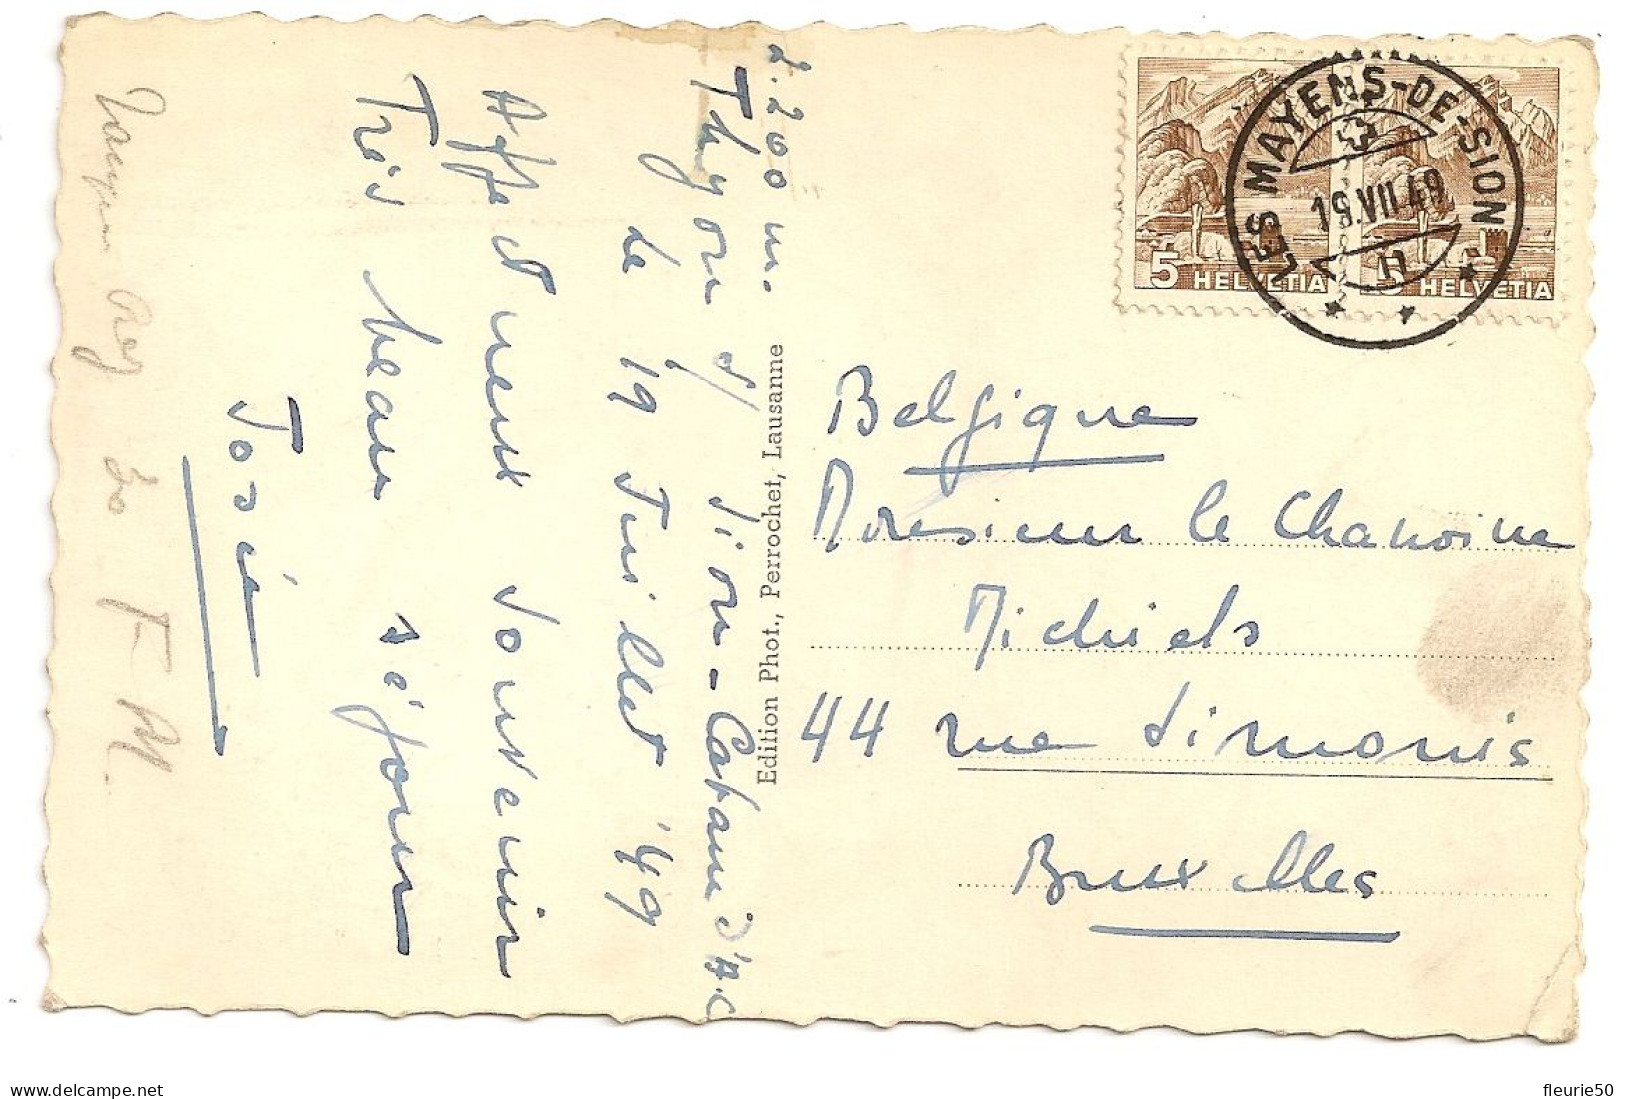 2.200 m.
Thyon s/ Sion-Cabane d'A.C
le 19 Juillet '49
Affectueux souvenir
Très beau séjour
José
F M.
Edition Phot., Perrochet, Lausanne
LES MAYENS-DE-SION
19.VII.49
5 HELVETIA
5 HELVETIA
Belgique
Monsieur le Chanoine
Michiels
44 rue Simonis
Bruxelles
fleurie50